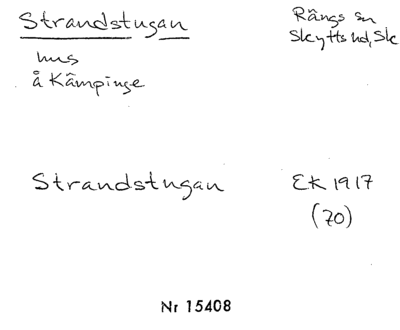 Strandstugan
Rängs sn
Skytts hd, Sk
hus
å Kämpinge
Strandstugan
EK 1917
(70)
Nr 15408